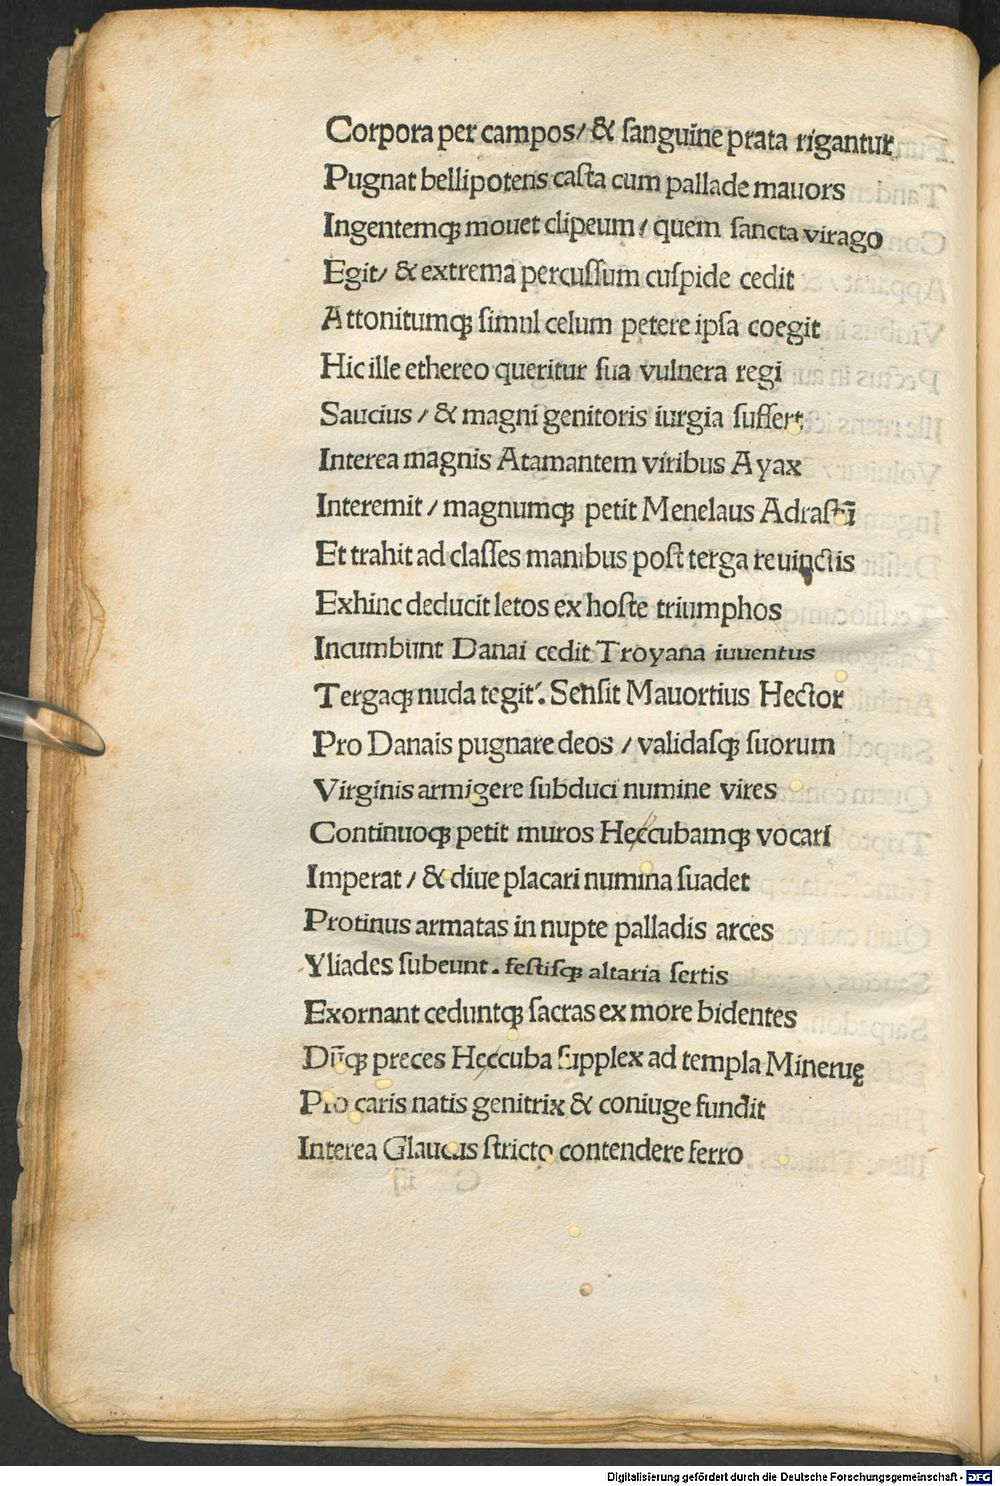 Corpora per campos/ & ſanguine prata rigantur
Pugnat bellipotens caſta cum pallade mauors
Ingentemqꝫ mouet clipeum / quem ſancta virago
Egit/ & extrema percuſſum cuſpide cedit
Attonitumqꝫ ſimul celum petere ipſa coegit
Hic ille ethereo queritur ſua vulnera regi
Saucius / & magni genitoris iurgia ſuffert
Interea magnis Atamantem viribus Ayax
Interemit / magnumqꝫ petit Menelaus Adraſtū
Et trahit ad claſſes manibus poſt terga reuinctis
Exhinc deducit letos ex hoſte triumphos
Incumbunt Danai cedit Troyana iuuentus
Tergaqꝫ nuda tegit. Senſit Mauortius Hector
Pro Danais pugnare deos / validaſqꝫ ſuorum
Virginis armigere ſubduci numine vires
Continuoqꝫ petit muros Heccubamqꝫ vocari
Imperat / & diue placari numina ſuadet
Protinus armatas in nupte palladis arces
Yliades ſubeunt. feſtiſqꝫ altaria ſertis
Exornant ceduntqꝫ ſacras ex more bidentes
Dūqꝫ preces Heccuba ſupplex ad templa Mineruę
Pro caris natis genitrix & coniuge fundit
Interea Glaucus ſtricto contendere ferro
Digitalisierung gefördert durch die Deutsche Forschungsgemeinschaft - DFG